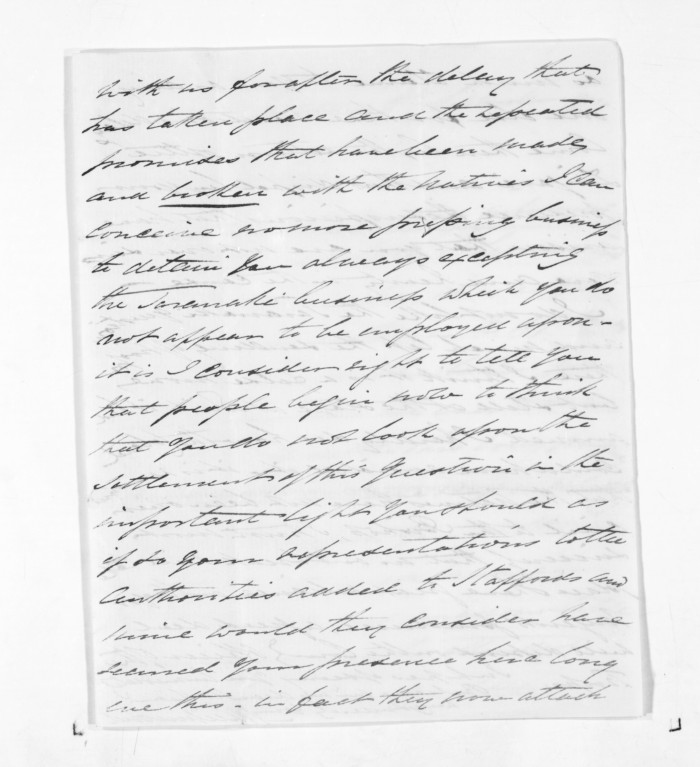 with us for after the delay that
has taken place and the repeated
promises that have been made
and broken with the Natives I can
conceive no more pressing business
to detain you always excepting
the Taranaki business which you do
not appear to be employed upon -
it is I consider right to tell you
that people begin now to think
that you do not look upon the
settlement of this Question in the
important light you should as
if so your representations to the
authorities added to Staffords and
mine would they consider have
secured your presence here long
ere this - in fact they now attach